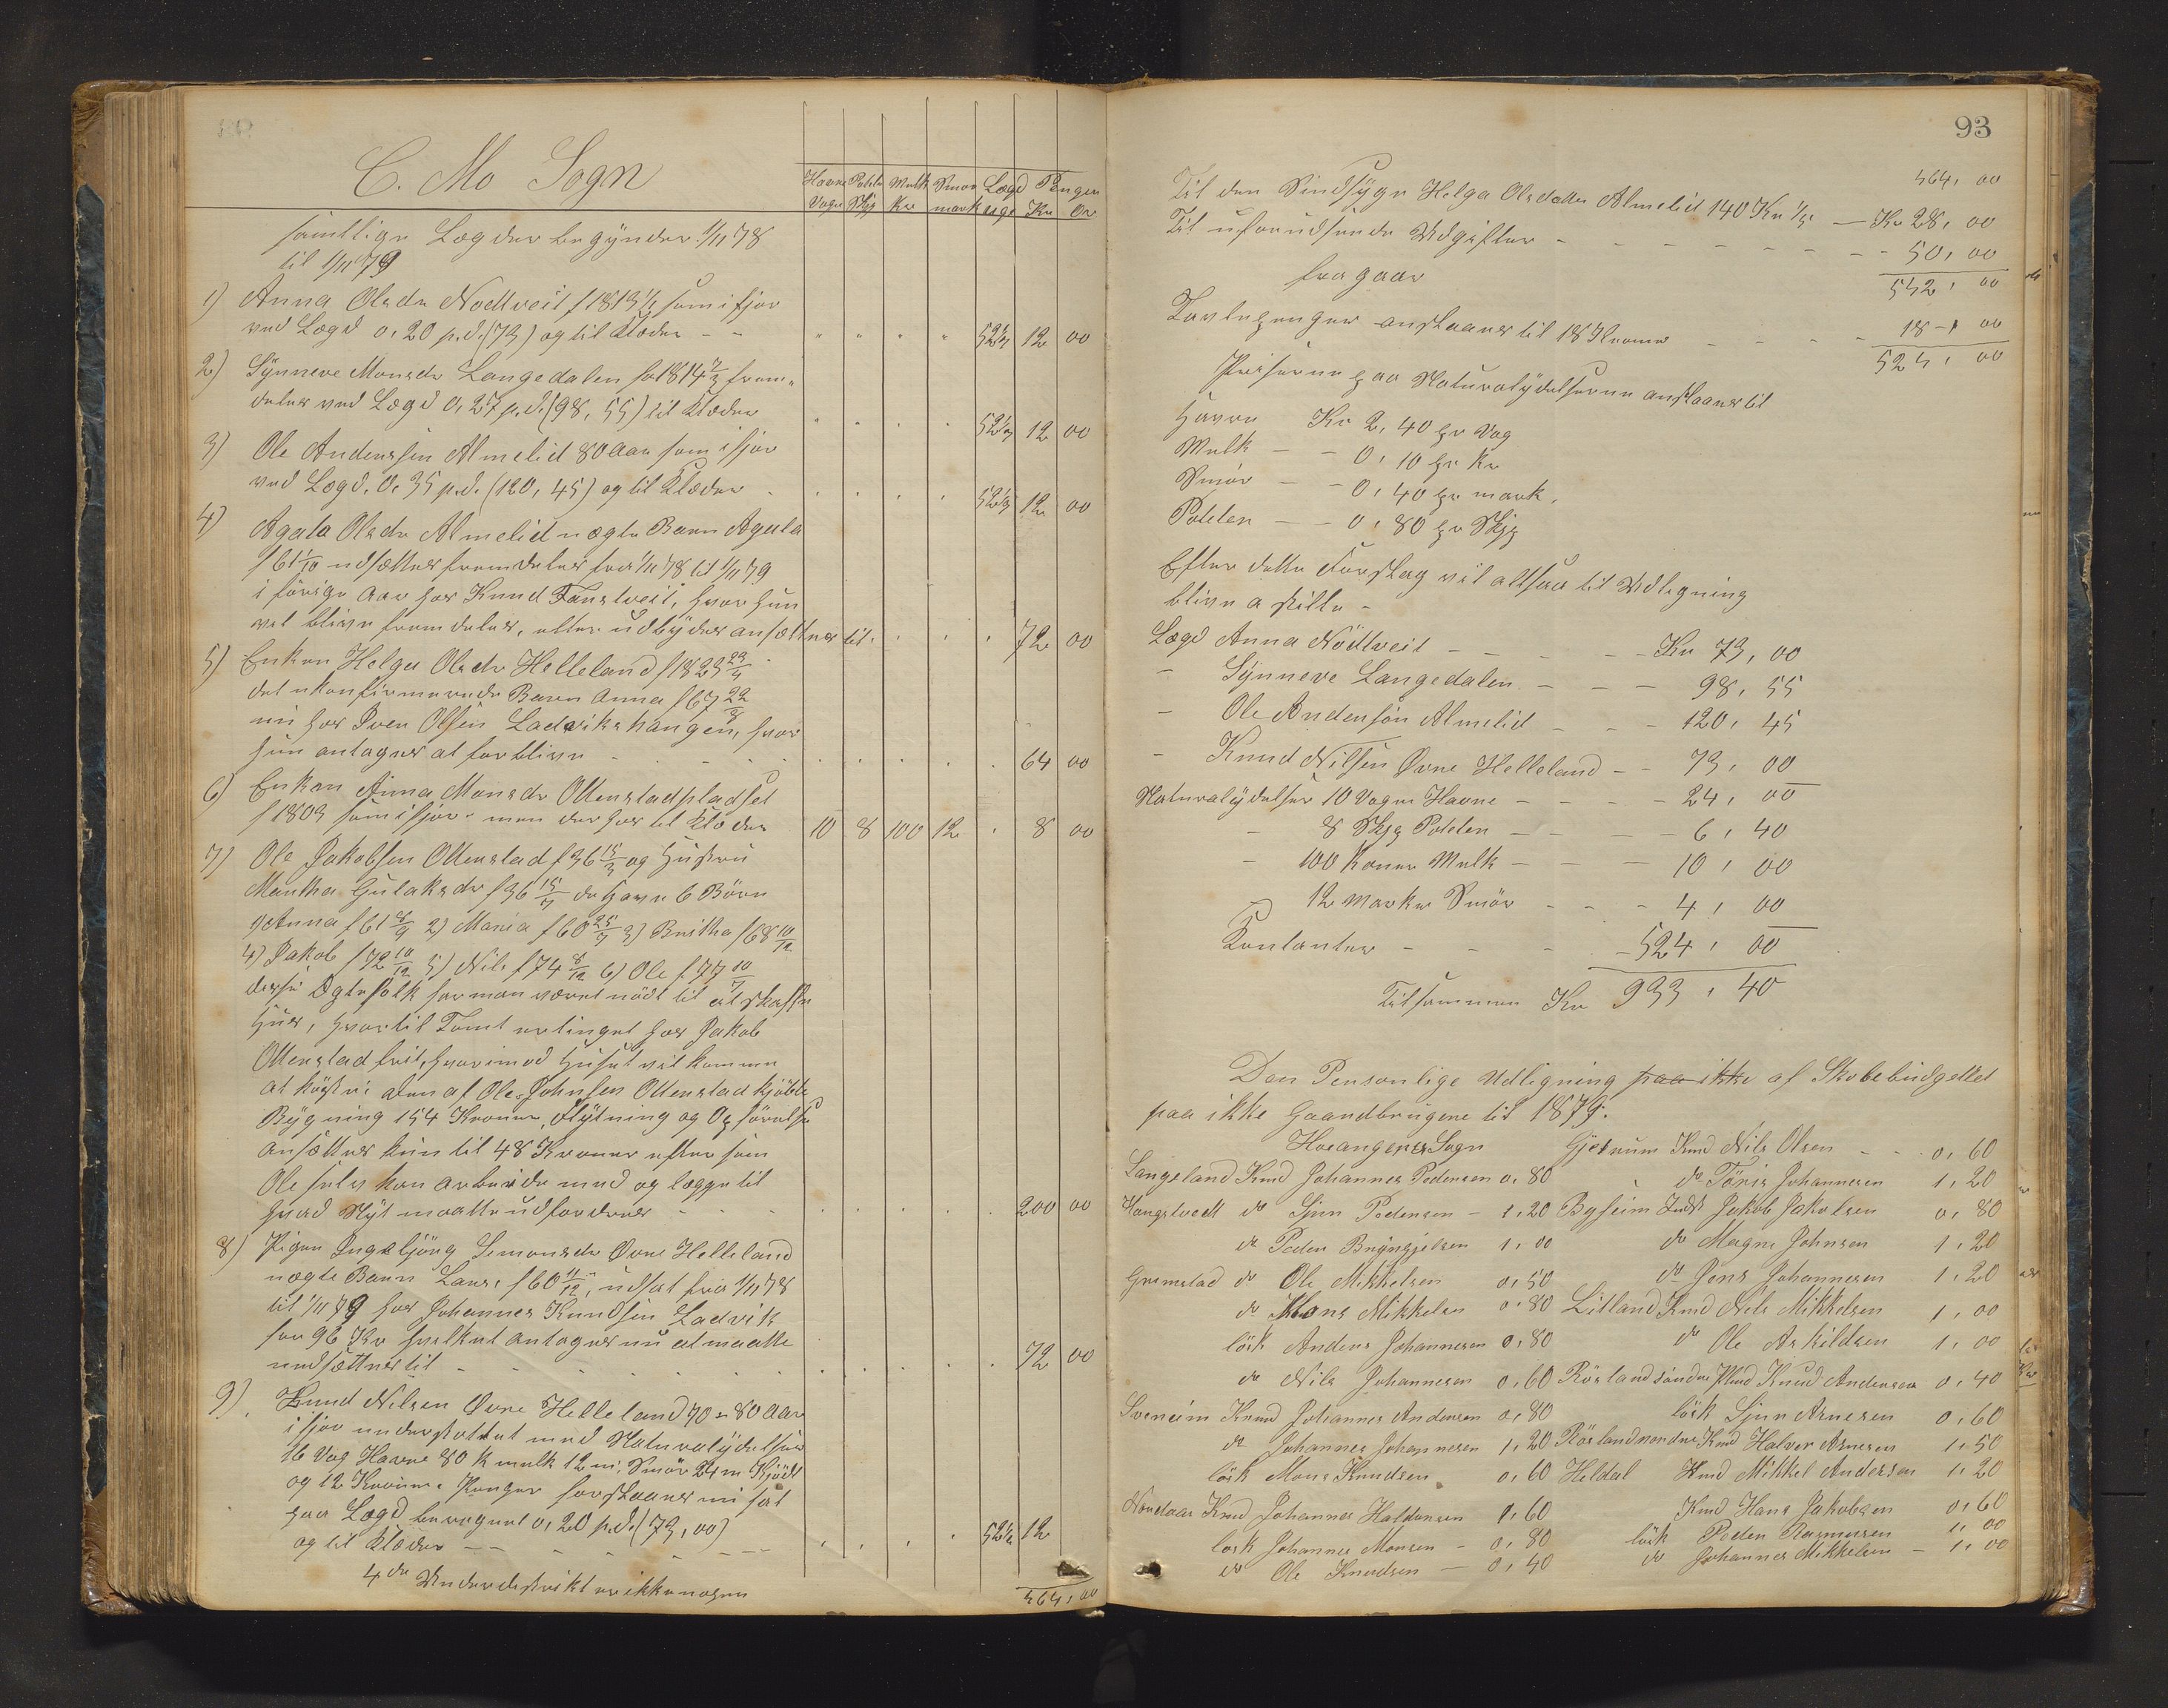 C. Mo Sogn
Havre Potetes Melk Smør Lægd Penger
Voger Skjp Kr mark uger Kr Ør
samtlige Lægder begynder 1/11 78
til 1/11 79
1) Anna Olsdr Nodtveit f 1813 1/2 som ifjor
ved Lægd 0,20 p.d. (73) og til Klæder - - " " " " 52 1/7 12 00
2) Synneve Monsdr Langedalen fr 1814 7/3 frem-
deles ved Lægd 0,27 p.d. (98,55) til Klæder " . . . 52 1/7 12 00
3) Ole Anderssen Almelid 80 Aar som ifjor
ved Lægd. 0,35 p.d. (120,45) og til Klæder . . . . . 52 1/7 12 00
4) Agata Olsdr Almelid uægte Barn Agata
f 61 1/10 udsættes fremdeles fra 1/11 78 til 1/11 79
i forrige Aar hos Knud Tanstveit, hvor hun
vel blive fremdeles, eller udbydes ansættes til . . . 72 00
5) Enken Helga Olsdr Helleland f 1823 23/4
det ukonfirmerede Barn Anna f 67 22/9
nu hos Iver Olsen Ladvikshaugen, hvor
hun antages at forblive - . . . . 64 00
6) Enken Anna Monsdr Ottenstadpladset
f 1803 som ifjor - men derhos til Klæder 10 8 100 12 . 8 00
7) Ole Jakobsen Ottenstad f 36 15/3 og Hustru
Martha Gulaksdr f 36 15/7 de have 6 Børn
1) Anna f 61 8/9 2) Maria f 60 25/7 3) Britha f 68 10/12
4) Jakob f 72 10/12 5) Nils f 74 8/12 6) Ole f 77 10/7
disse Ægtefolk har man været nødt til at skaffe
Huus, hvortil Tomt er tinget hos Jakob
Ottenstad frit, hvorimod Huset vil komme
at koste: den af Ole Johnsen Ottenstad kjøbte
Bygning 154 Kroner, Flytning og Opførelse
ansættes kun til 48 Kroner eftersom
Ole selv kan arbeide med og lægge til
hvad Nyt maatte udfordres - - - . . . . . 200 00
8) Pigen Ingebjørg Simonsdr Øvre Helleland
uægte Barn Lars, f 60 11/12, udsat fra 1/11 78
til 1/11 79 hos Johannes Knudsen Ladvik
for 96 Kr hvilket antages nu at maatte
nedsættes til - . . . . . . 72 00
9) Knud Nilsen Øvre Helleland 70 a 80 Aar
ifjor understøttet med Naturalydelser
16 Vog Havre 80 K melk 12 m. Smør 24 m Kjødt
og 12 Kroner. Penger forslaaes nu sat
paa Lægd beregnet 0,20 p.d. (73,00)
og til Klæder - - - - - . . . . 52 1/7 12
4de Underdistrikt er ikke nogen
564,00
93
564,00
Til den Sindsyge Helga Olsdatter Almelid 140 Kr 1/5 - Kr 28,00
Til uforudseende Udgifter - - - - - - - - 50,00
542,00
fragaar
Tavlepenger anslaaes til 18 Kroner - - - - 18-,00
524,00
Priserne paa Naturalydelserne anslaaes til
Havre Kr 2,40 pr Vog
Melk - - 0,10 pr Kr
Smør - - 0,40 pr mark.
Poteter - - 0,80 pr Skjp
Efter dette Forslag vil altsaa til Udligning
blive a stille -
Lægd Anna Nödtveit - - - - - Kr 73,00
- Synneve Langedalen - - - 98,55
- Ole Andersön Almelid - - - 120,45
- Knud Nilsen Øvre Helleland - - 73,00
Naturalydelser 10 Voger Havre - - - - 24,00
- 8 Skjp Poteter - - - - 6,40
- 100 Kaner Melk - - - 10,00
12 Marker Smør - - - 4,00
Kontanter - - - - 524,00
Tilsammen Kr 933,40
Den Personlige Udligning paa ikke af Skolebudgettet
paa ikke Gaardbrugere til 1879.
Hosangers Sogn
Langeland Kmd Johannes Pedersen 0,80
Hongstvedt do Sjur Pedersen - 1,20
do Peder Brÿngjelsen 1,00
Grimstad do Ole Mikkelsen 0,50
do Mons Mikkelsen 0,80
lösk Anders Johannesen 0,80
do Nils Johannesen 0,60
Sveneim Kmd Johannes Andersen 0,80
do Johannes Johannesen 1,20
lösk Mons Knudsen 0,60
Nordaas Kmd Johannes Haldorsen 1,60
lösk Johannes Monsen - 0,80
do Ole Knudsen - 0,40
Gjetrum Kmd Nils Olsen - - 0,60
do Töris Johannesen 1,20
Byseim Inds Jakob Jakobsen 0,80
do Magne Johnsen 1,20
do Jens Johannesen 1,20
Litland Kmd Nils Mikkelsen 1,00
do Ole Askildsen 1,00
Rösland söndre Kmd Knud Andersen 0,40
lösk Sjur Arnesen 0,60
Rösland nordre Kmd Halvor Arnesen 1,50
Heldal Kmd Mikkel Andersen 1,20
Kmd Hans Jakobsen 0,60
lösk Peder Rasmusen 1,00
do Johannes Mikkelsen - 1,00